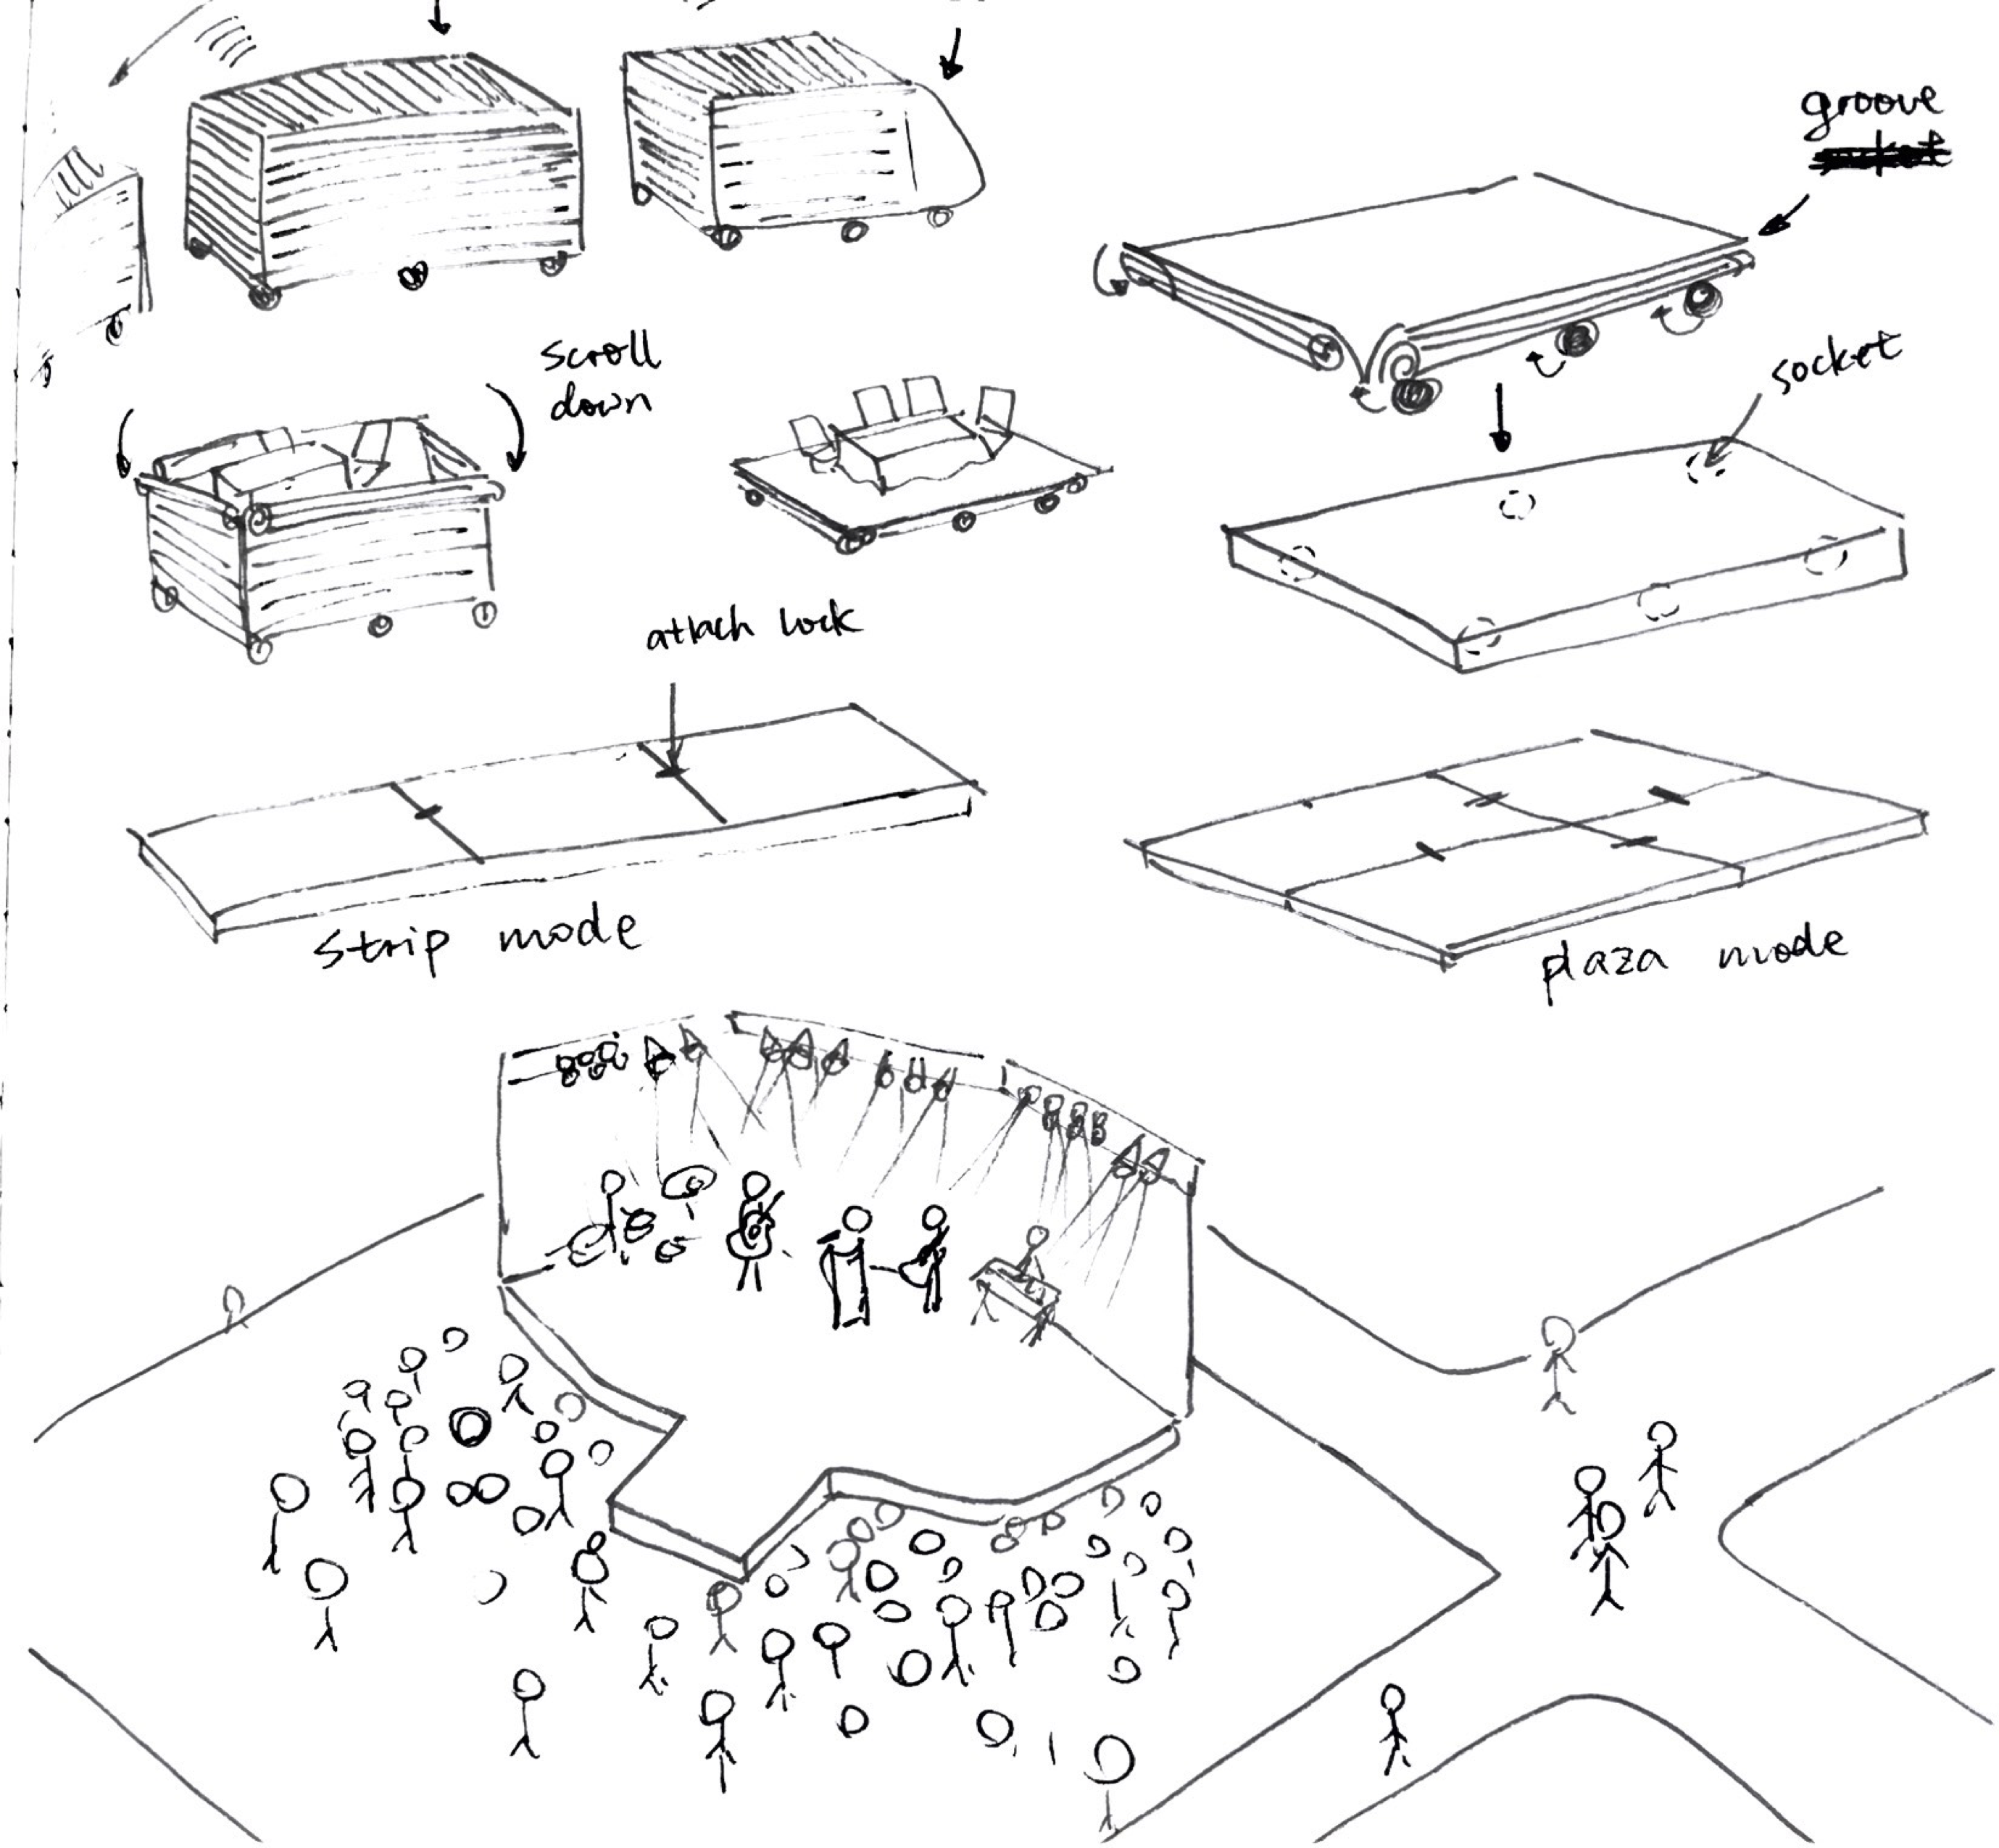 groove
socket
scroll
down
socket
attach lock
strip mode
plaza mode